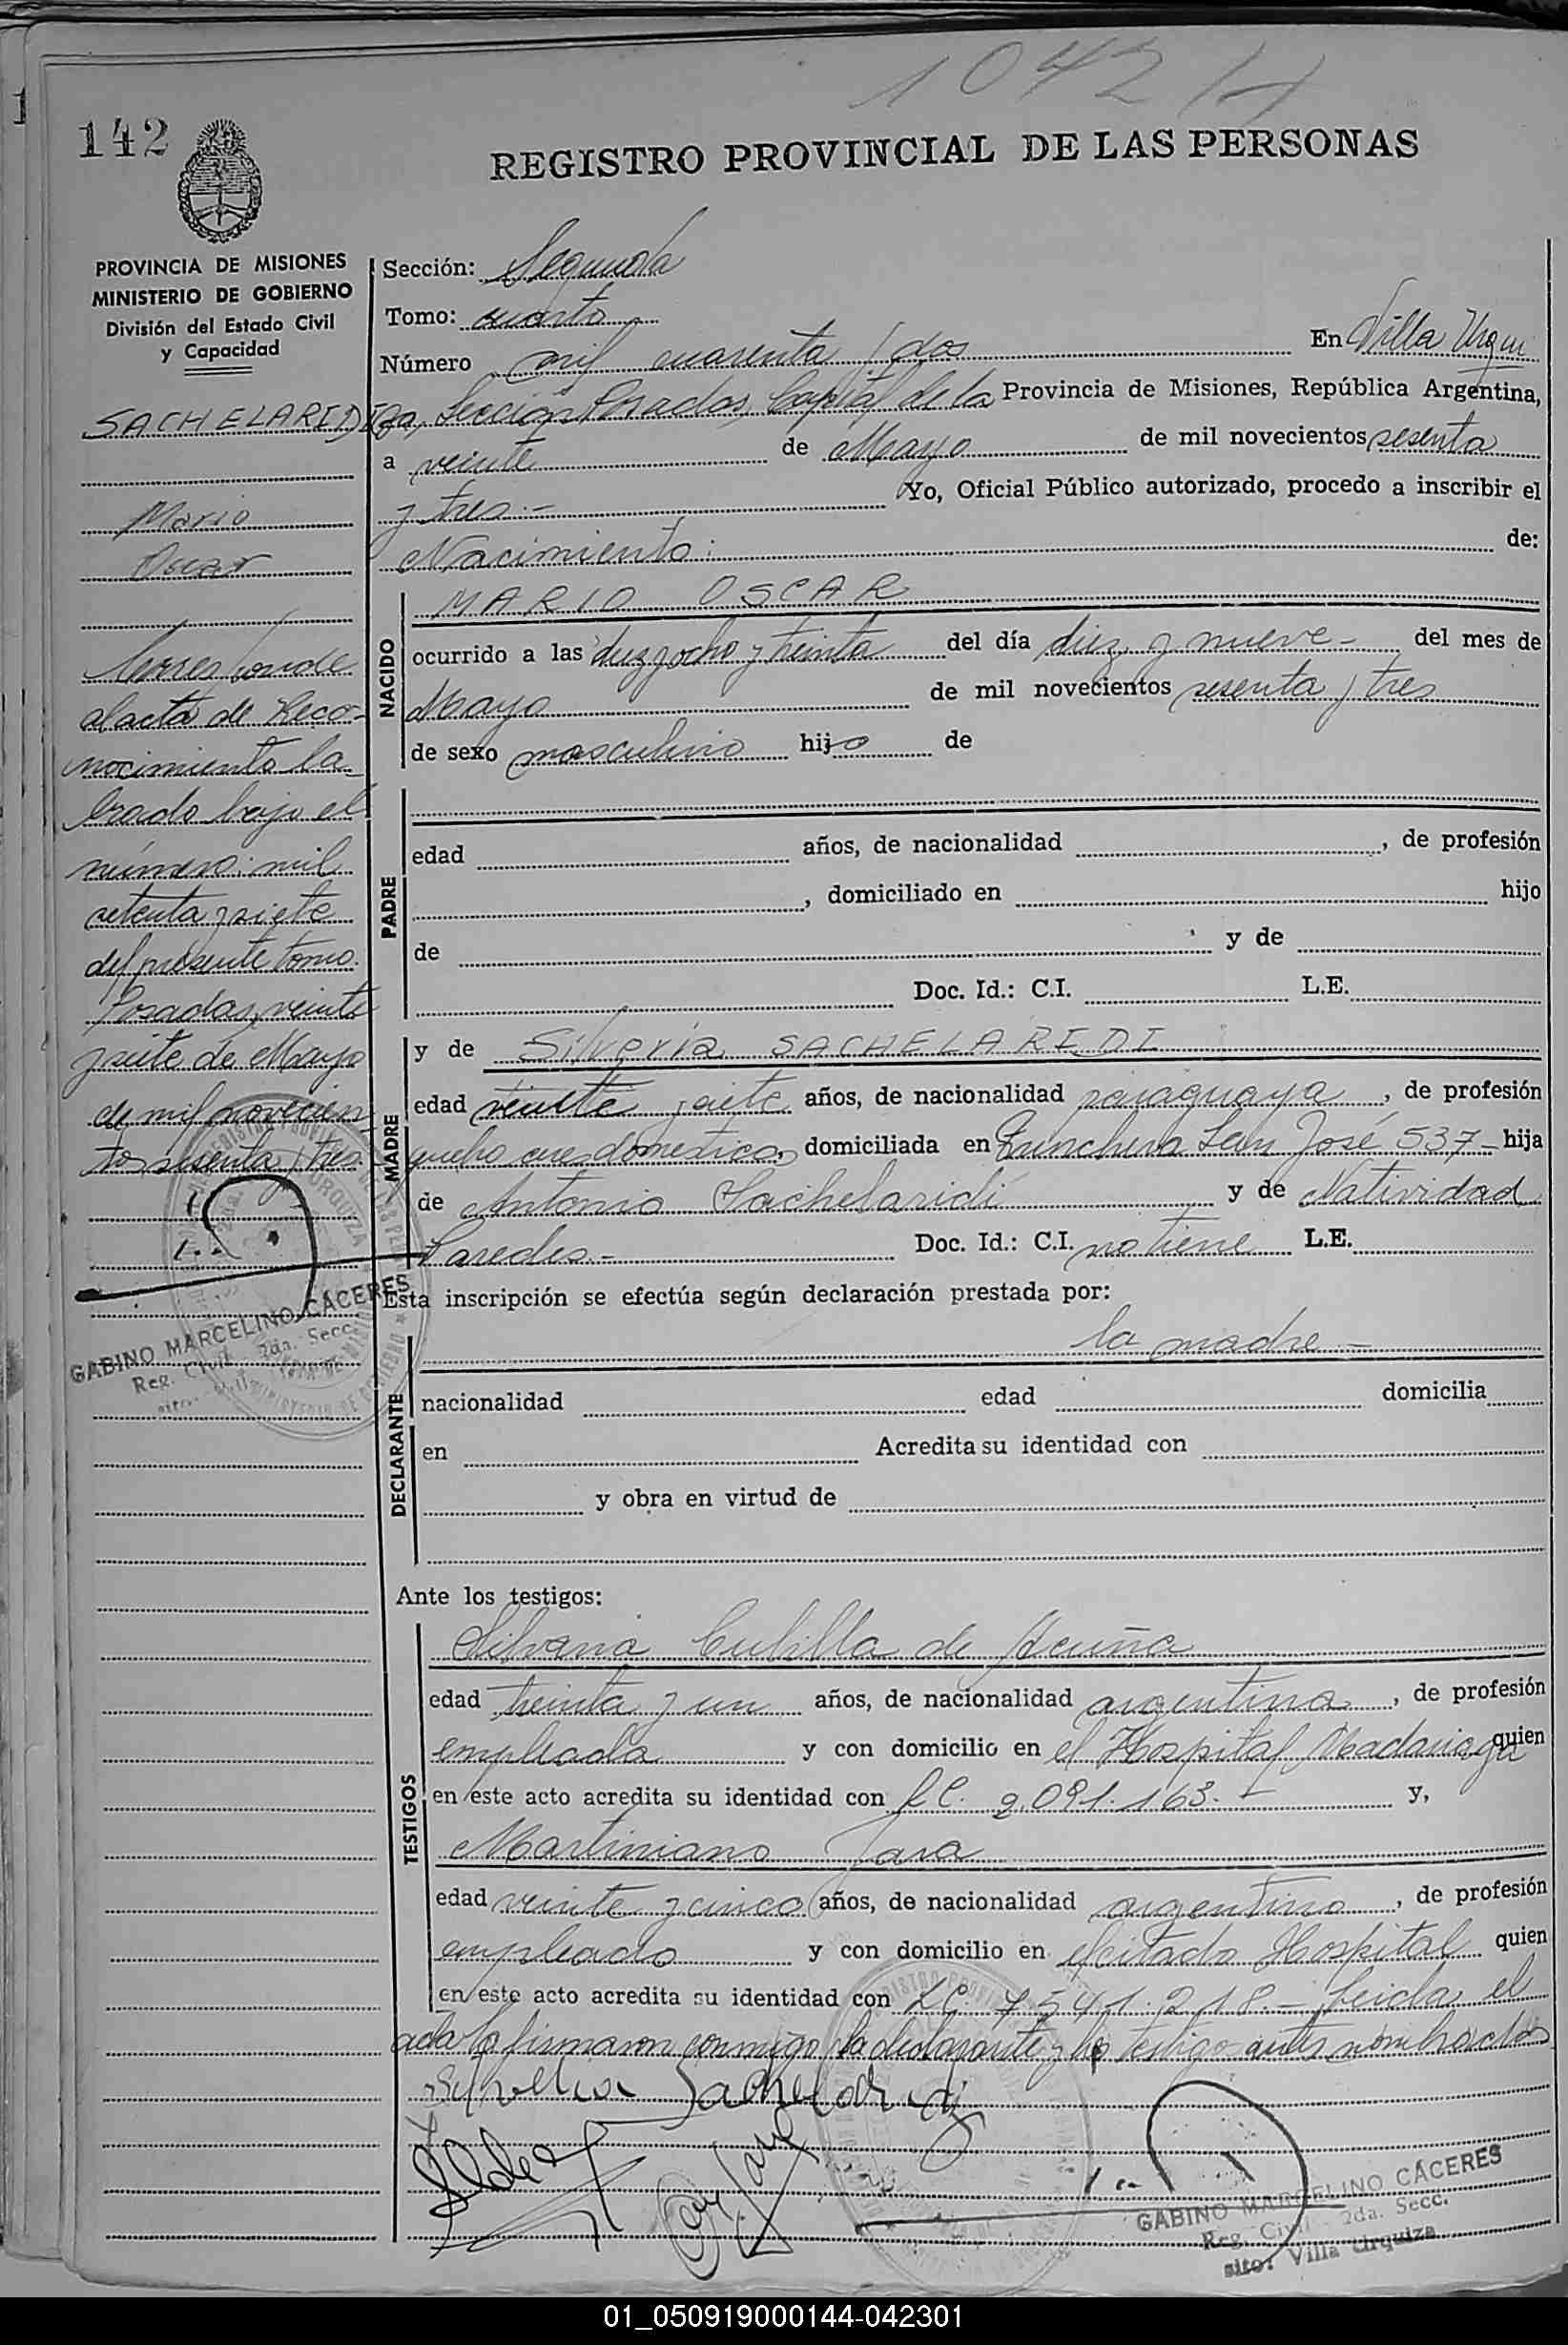 1042 H
142
REGISTRO PROVINCIAL DE LAS PERSONAS
PROVINCIA DE MISIONES
MINISTERIO DE GOBIERNO
División del Estado Civil
y Capacidad
SACHELARIDI
Mario
Oscar
Corresponde
al acta de Reco-
nocimiento la-
brado bajo el
número: mil
setenta y siete
del presente tomo.
Posadas, veinte
y siete de Mayo
de mil novecien
tos sesenta y tres.
GABINO MARCELINO CÁCERES
Reg. Civil - 2da. Secc.
Sección: Segunda
Tomo: cuarto
Número mil cuarenta y dos En Villa Urqui
za, Sección Posadas, Capital de la Provincia de Misiones, República Argentina,
a veinte de Mayo de mil novecientos sesenta
y tres.- Yo, Oficial Público autorizado, procedo a inscribir el
Nacimiento: de:
NACIDO
MARIO OSCAR
ocurrido a las diez y ocho y treinta del día diez y nueve- del mes de
Mayo de mil novecientos sesenta y tres
de sexo masculino hijo de
PADRE
edad años, de nacionalidad , de profesión
, domiciliado en hijo
de y de
Doc. Id.: C.I. L.E.
MADRE
y de Silveria SACHELARIDI
edad veinte y siete años, de nacionalidad paraguaya , de profesión
domesticos, domiciliada en Trinchera San José 537- hija
de Antonio Sachelaridi y de Natividad
Paredes.- Doc. Id.: C.I. no tiene L.E.
Esta inscripción se efectúa según declaración prestada por:
DECLARANTE
la madre-
nacionalidad edad domicilia
en Acredita su identidad con
y obra en virtud de
Ante los testigos:
TESTIGOS
Silvana Cubilla de Acuña
edad treinta y un años, de nacionalidad argentina , de profesión
empleada y con domicilio en el Hospital Madariaga quien
en este acto acredita su identidad con L.C. 2.091.163.- y,
Martiniano Jara
edad veinte y cinco años, de nacionalidad argentino , de profesión
empleado y con domicilio en el citado Hospital quien
en este acto acredita su identidad con L.E. 7.541.218.- Leida el
acta la firmaron conmigo la declarante y los testigo antes nombrados
Silveria Sachelaridi
GABINO MARCELINO CÁCERES
Reg. Civil - 2da. Secc.
sito: Villa Urquiza
01_050919000144-042301